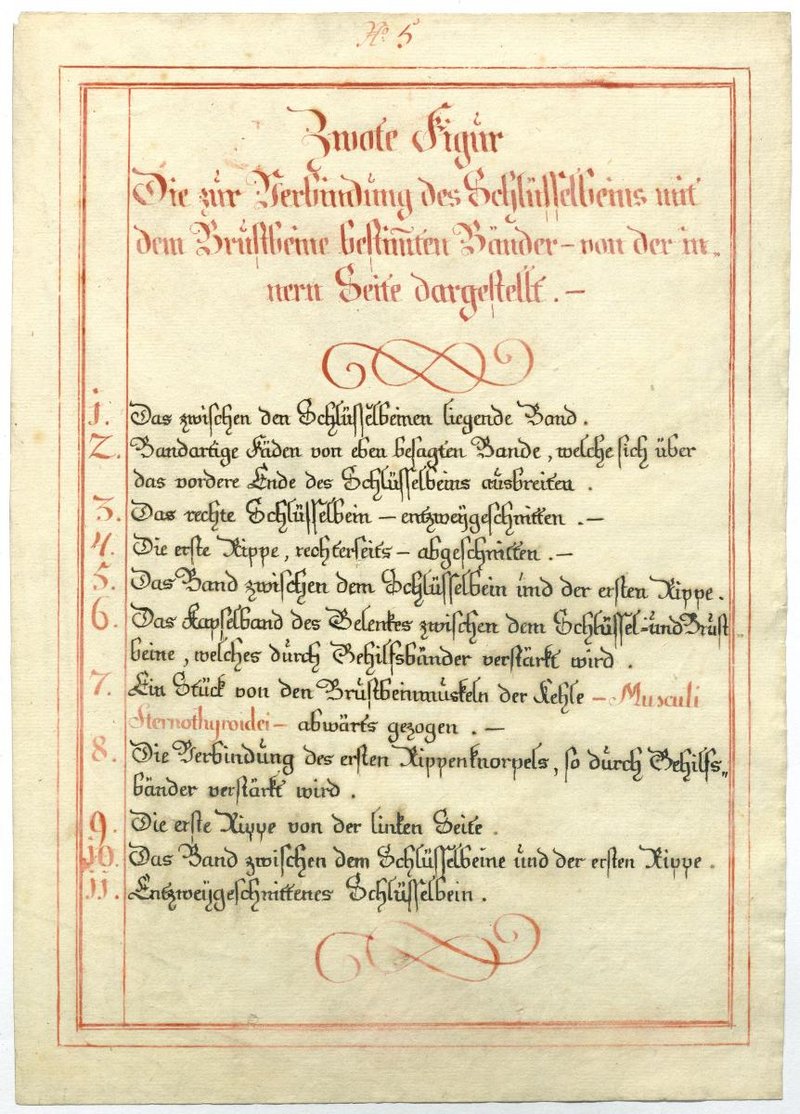 No 5
Zwote Figur
Die zur Verbindung des Schlüsselbeins mit
dem Brustbeine bestim̄ten Bänder – von der in„
nern Seite dargestellt. –
1. Das zwischen den Schlüsselbeinen liegende Band.
2. Bandartige Fäden von eben besagten Bande, welche sich über
das vordere Ende des Schlüsselbeins ausbreiten.
3. Das rechte Schlüsselbein – entzweÿgeschnitten. –
4. Die erste Rippe, rechterseits – abgeschnitten. –
5. Das Band zwischen dem Schlüsselbein und der ersten Rippe.
6. Das Kapselband des Gelenkes zwischen dem Schlüssel- und Brust
beine, welches durch Gehilfsbänder verstärkt wird.
7. Ein Stück von den Brustbeinmuskeln der Kehle – Musculi
Sternothyroidei – abwärts gezogen. –
8. Die Verbindung des ersten Rippenknorpels, so durch Gehilfs„
bänder verstärkt wird.
9. Die erste Rippe von der linken Seite.
10. Das Band zwischen dem Schlüsselbeine und der ersten Rippe.
11. Entzweÿgeschnittenes Schlüsselbein.